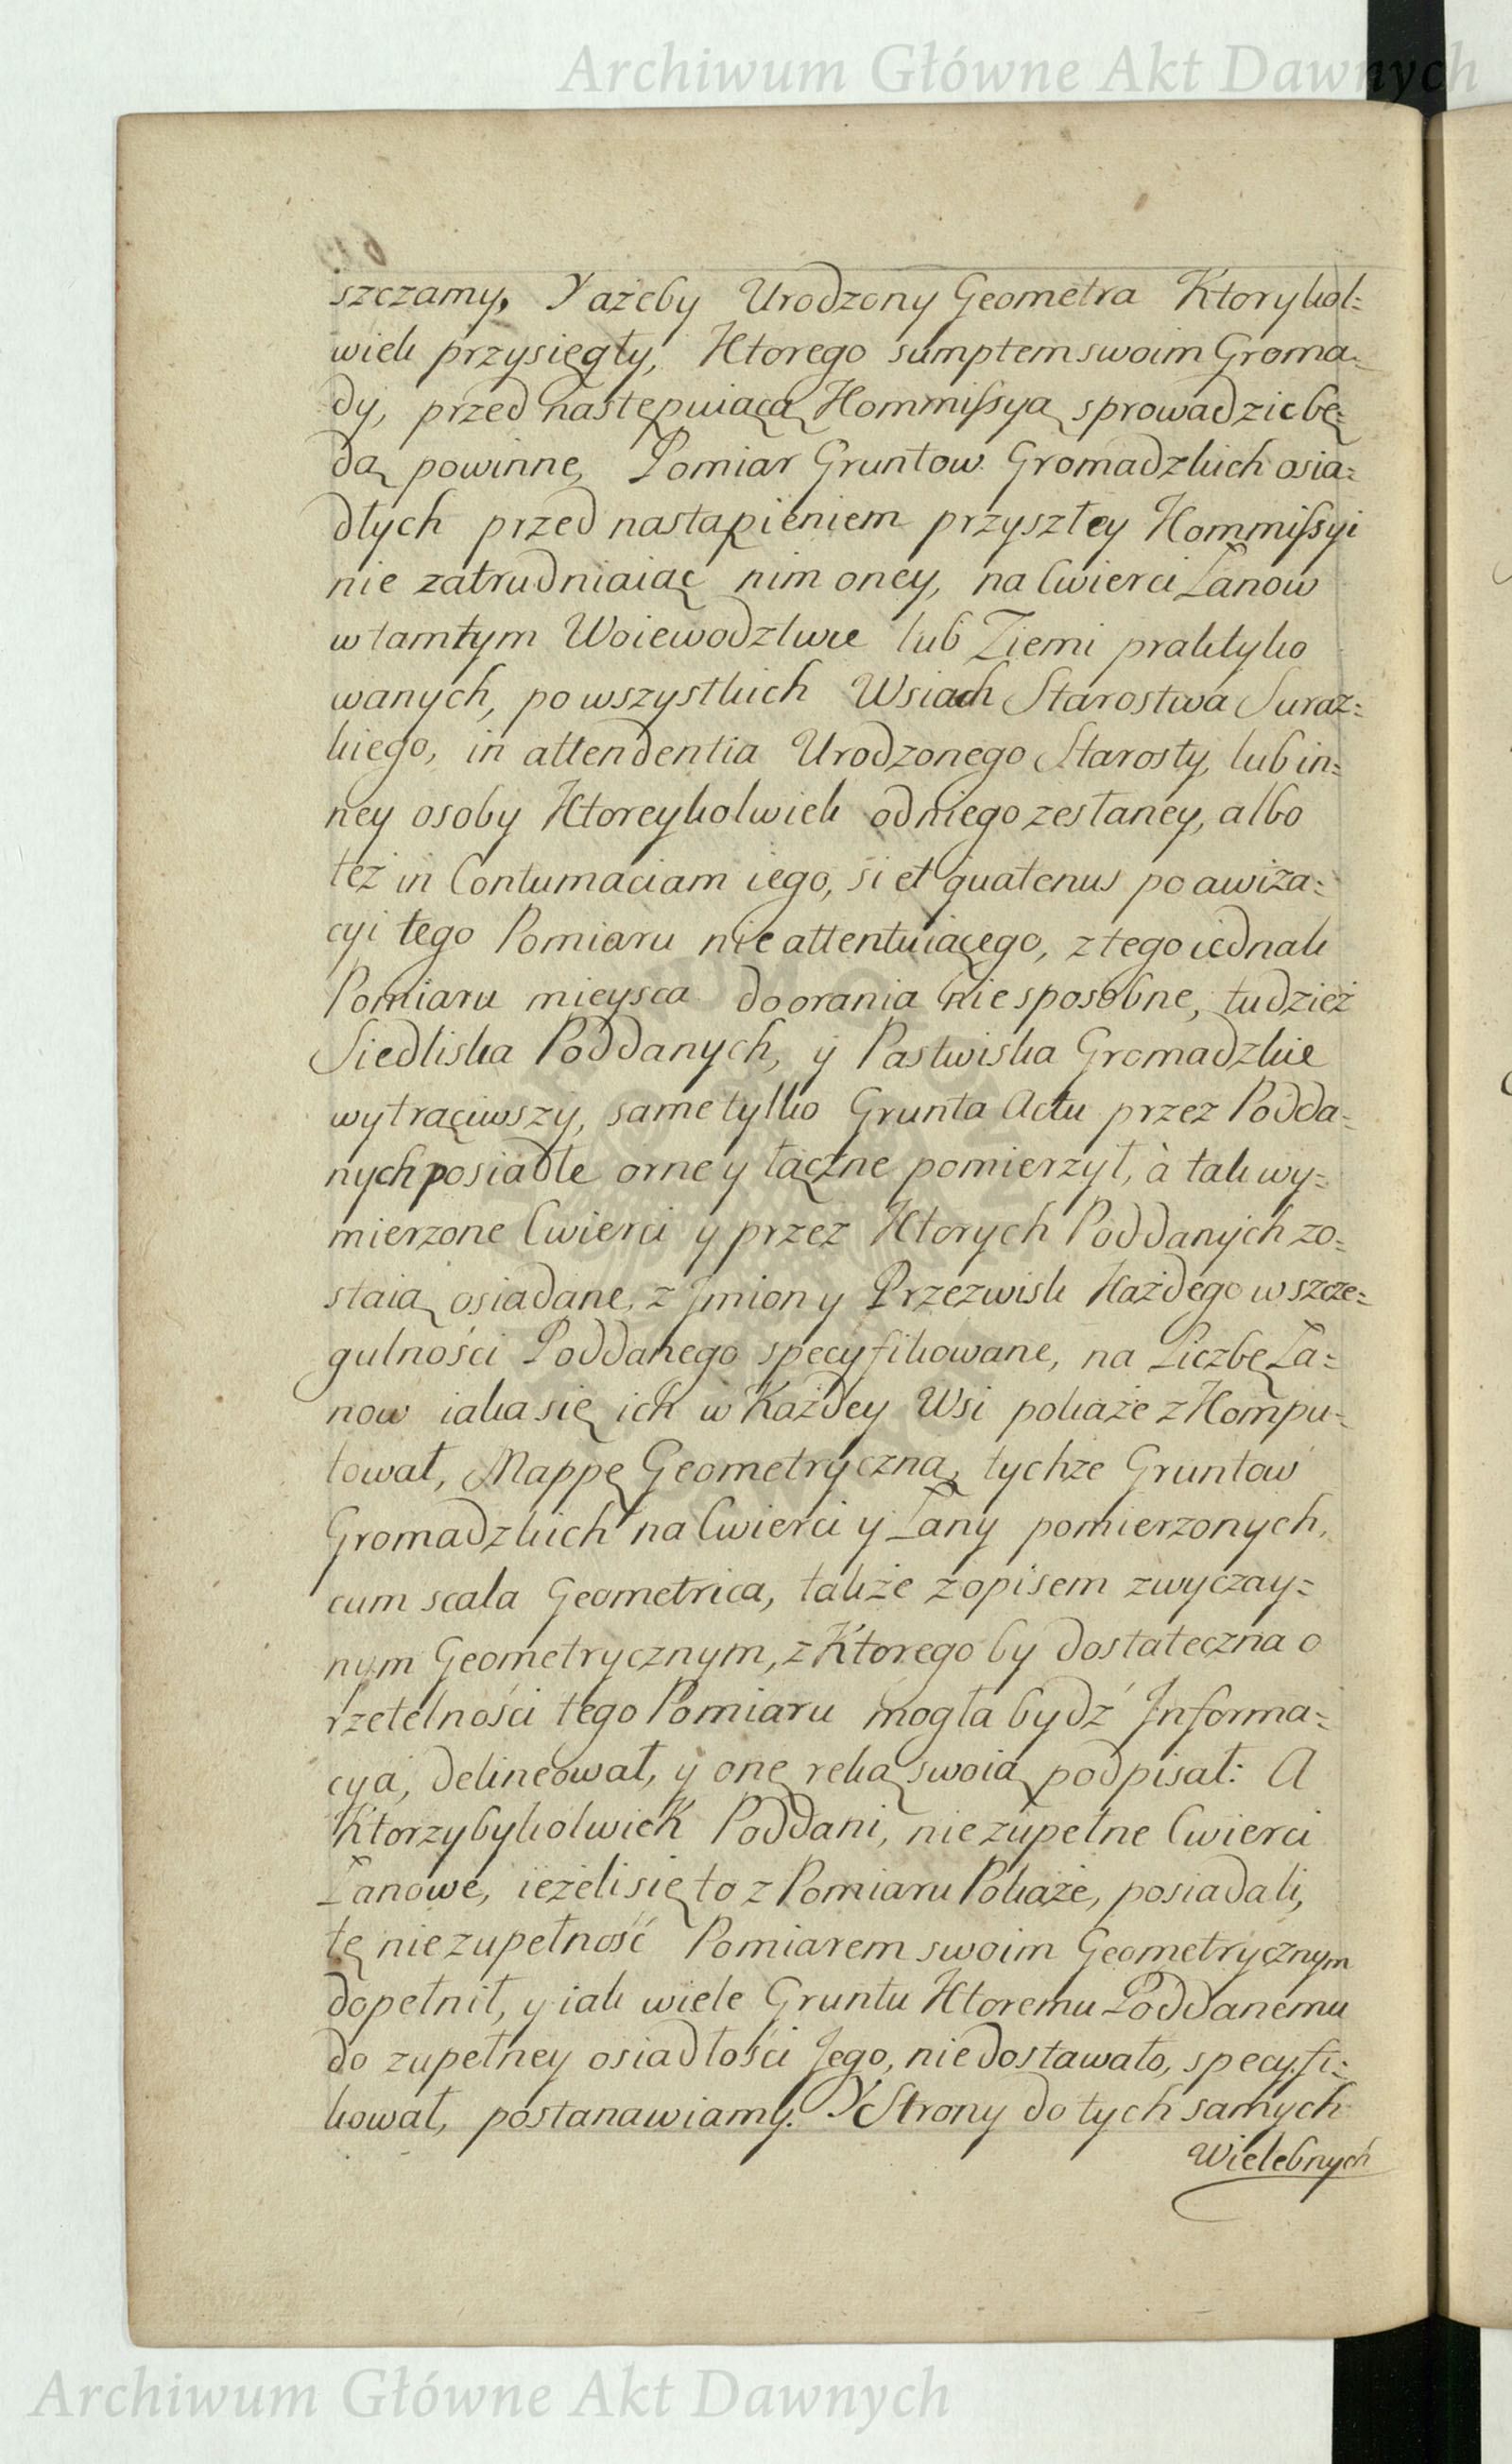 Archiwum Główne Akt Dawnych
szczamy, Y ażeby Urodzony Geometra Ktorykol=
wiek przysięgły, Ktorego sumptem swoim Groma=
dy, przed następuiącą Kommissyą sprowadzic bę=
dą powinne, Pomiar Gruntow Gromadzkich osia=
dłych przed nastąpieniem przyszłey Kommissyi
nie zatrudniaiąc nim oney, na Cwierci Łanow
w tamtym Woiewodztwie lub Ziemi praktyko
wanych, po wszystkich Wsiach Starostwa Suraz=
kiego, in attendentia Urodzonego Starosty, lub in=
ney osoby Ktoreykolwiek od niego zesłaney, albo
też in Contumaciam iego, si et quatenus po awiza=
cyi tego Pomiaru nie attentuiącego, z tego iednak
Pomiaru mieysca do orania nie sposobne, tudzież
Siedliska Poddanych, y Pastwiska Gromadzkie
wytrąciwszy, same tylko Grunta Actu przez Podda=
nych posiadłe orne y łączne pomierzył, à tak wy=
mierzone Cwierci y przez Ktorych Poddanych zo=
staią osiadane, z Jmion y Przezwisk Każdego w szcze=
gulności Poddanego specyfikowane, na Liczbę Ła=
now iaka się ich w Każdey Wsi pokaże z Kompu=
tował, Mappę Geometryczną, tychże Gruntow
Gromadzkich na Cwierci y Łany pomierzonych,
cum scala Geometrica, także z opisem zwyczay=
nym Geometrycznym, z Ktorego by dostateczna o
rzetelności tego Pomiaru mogła bydź Informa=
cya, delineował, y onę ręką swoią podpisał: A
Ktorzybykolwiek Poddani, nie zupełne Cwierci
Łanowe, ieżeli się to z Pomiaru Pokaże, posiadali,
tę nie zupełność Pomiarem swoim Geometrycznym
dopełnił, y iak wiele Gruntu Ktoremu Poddanemu
do zupełney osiadłości Jego, nie dostawało, specyfi=
kował, postanawiamy. Y Strony do tych samych
Wielebnych
Archiwum Główne Akt Dawnych